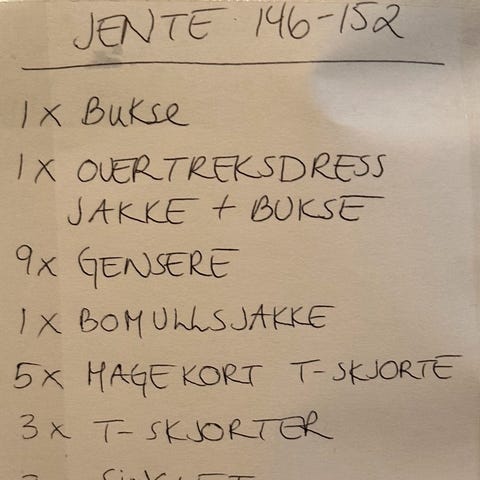 JENTE 146-152
1 x Bukse
1 x OVERTREKSDRESS
JAKKE + BUKSE
9x GENSERE
1 x BOMULLSJAKKE
5x MAGEKORT T-SKJORTE
3 x T-SKJORTER